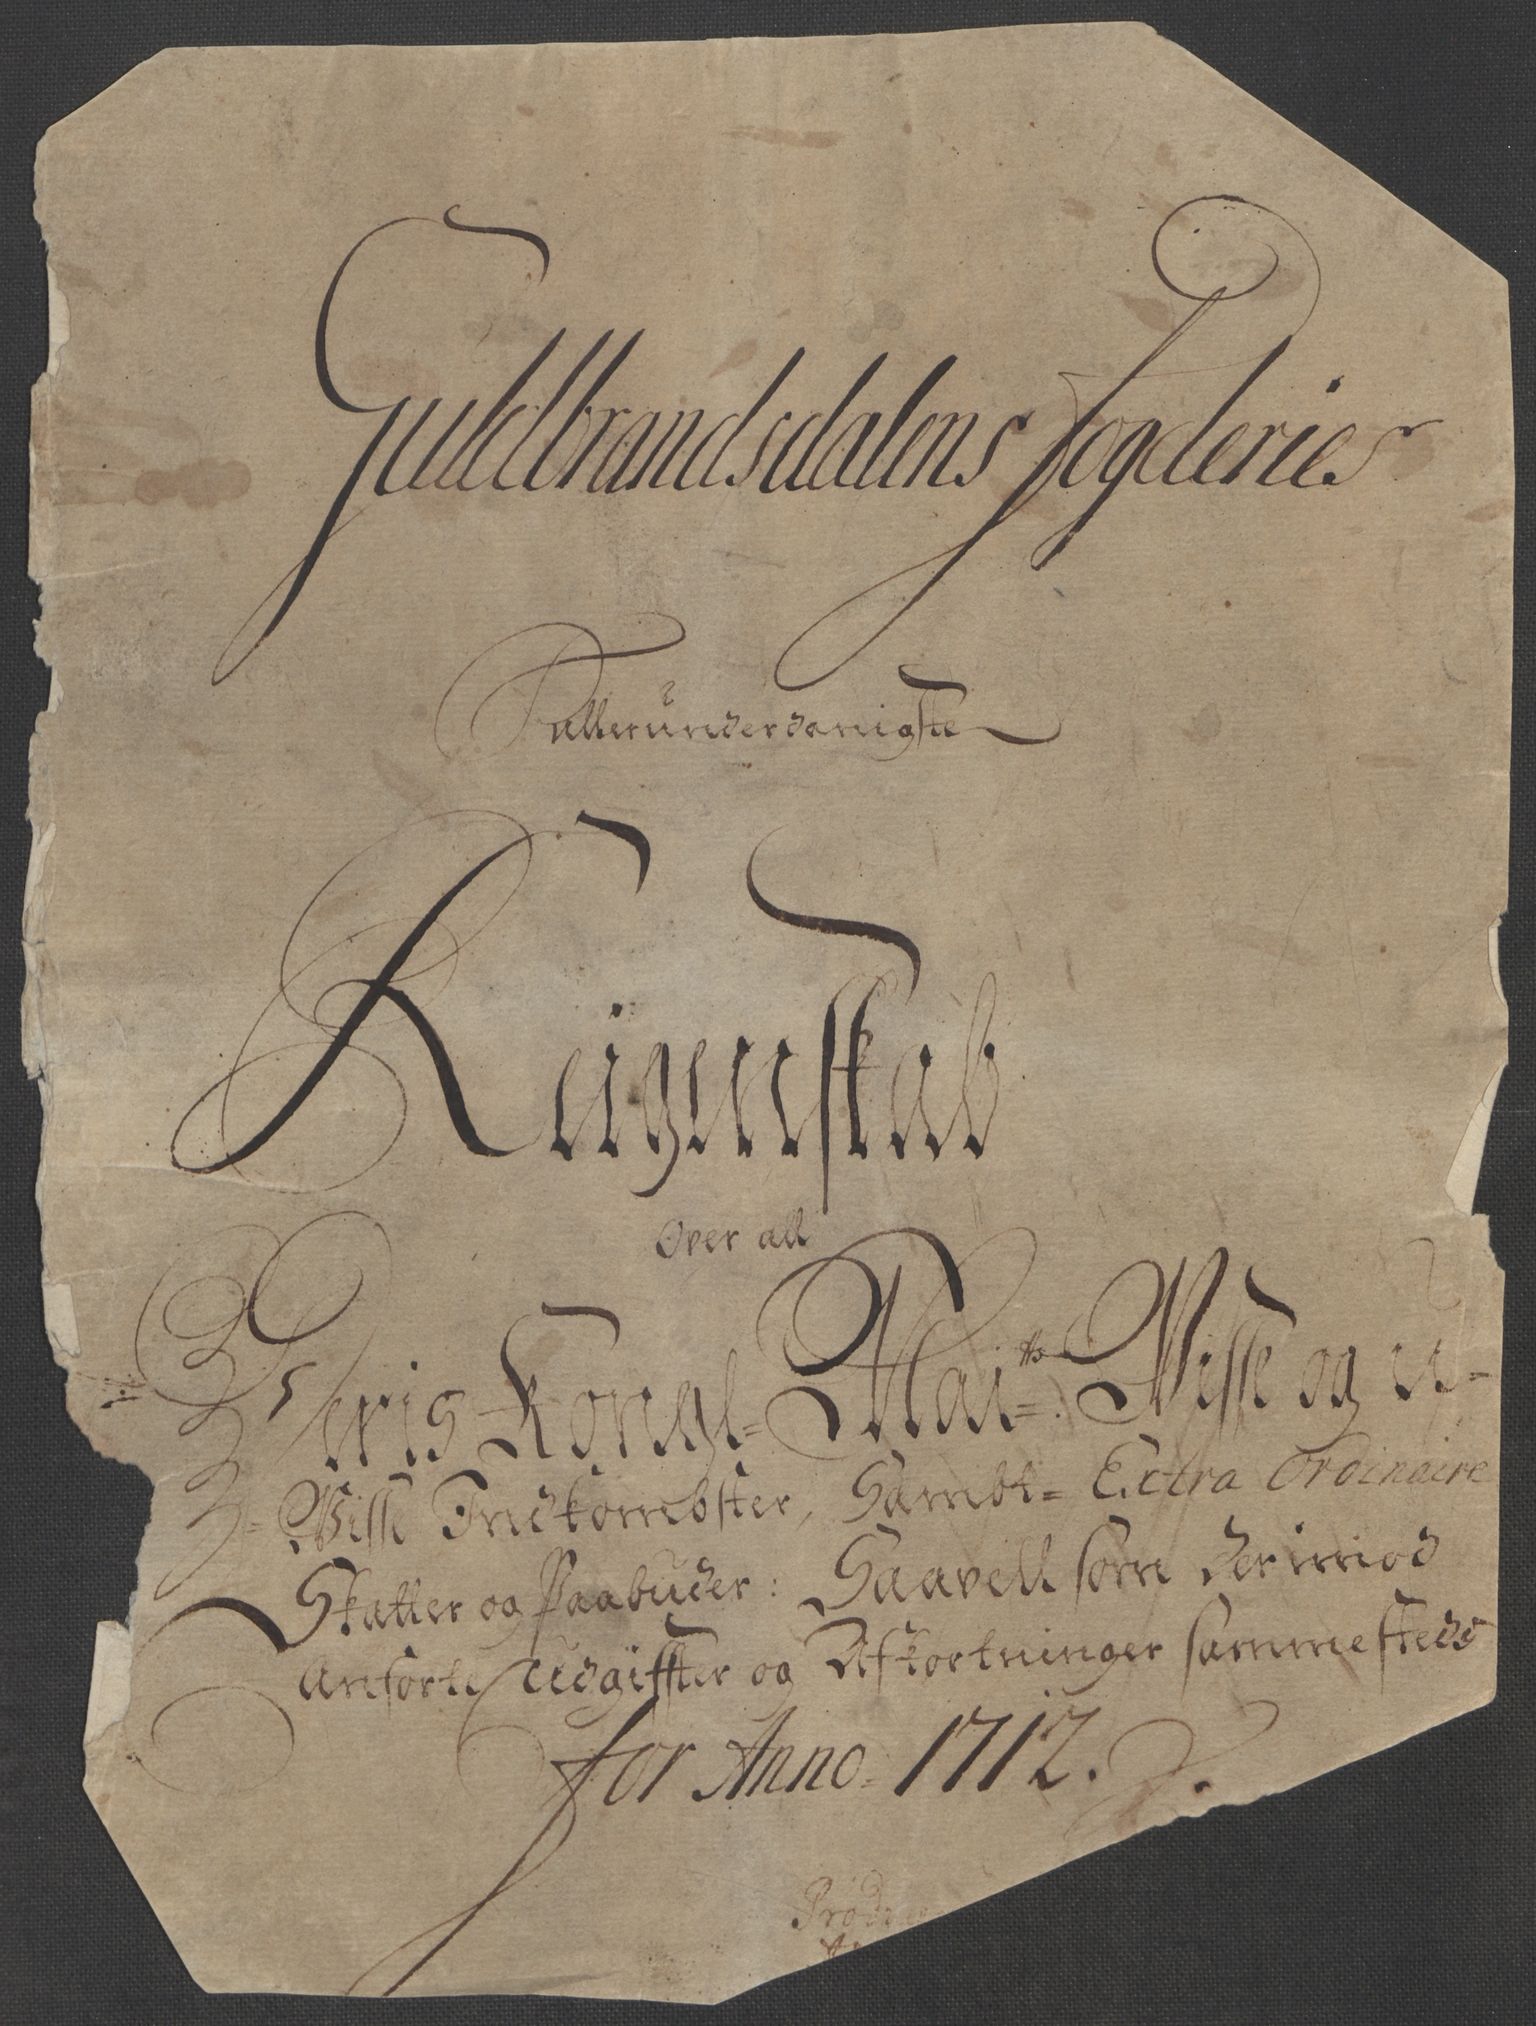 Guldbrandsdalens fogderies
allerunderdanigste
Reigenskab
Over all
Hans Kongl= Mai=ts Visse og u=
Visse Indkombster, Sambt= Extra Ordinaire
Skatter og Paabuder: Saavell som der imod
Anførte Udgiffter og Afkortninger sammesteds
for Anno= 1712.